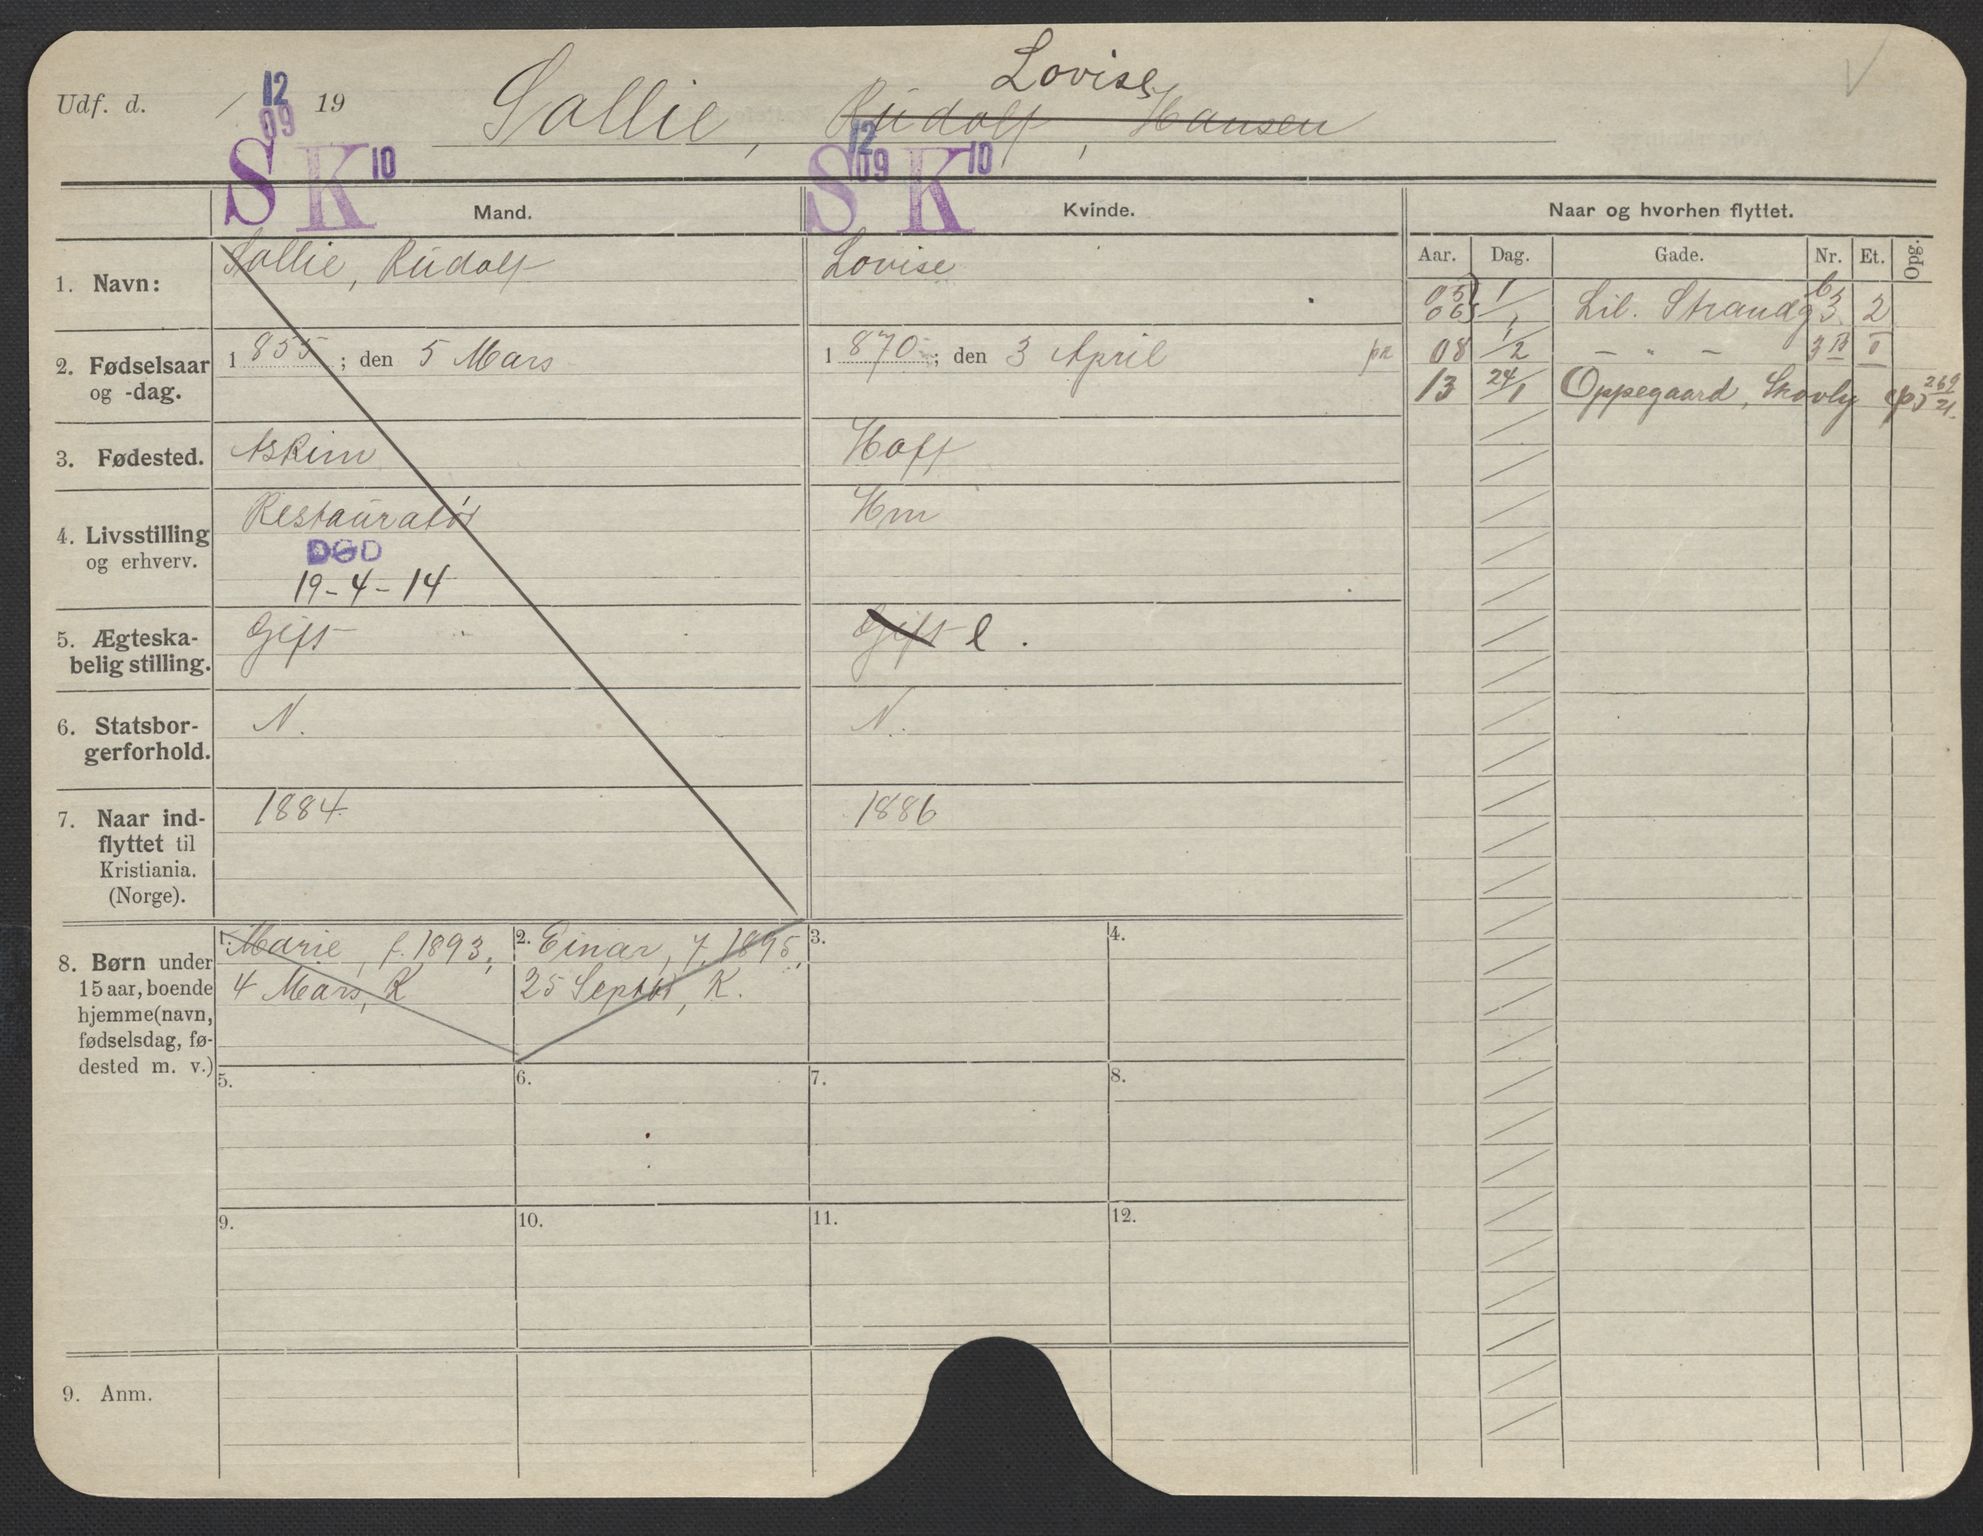 Lovise
Udf. d. / 12 09 19 Sollie, Rudolf, Hansen
S K 10 12 09 S K 10
Mand. Kvinde. Naar og hvorhen flyttet.
Aar. Dag. Gade. Nr. Et. Opg.
1. Navn: Sollie, Rudolf Lovise
05 06 1/1 Lil. Strandg 3 2
2. Fødselsaar og -dag. 1 855 ; den 5 Mars 1 870 ; den 3 April
08 1/2 – " – 3 B I
13 24/1 Oppegaard, Skovly 269 21.
3. Fødested. Askim Hoff
4. Livsstilling og erhverv. Restauratør Hm
DØD
19-4-14
5. Ægteska-
belig stilling. Gift Gift e.
6. Statsbor-
gerforhold. N. N.
7. Naar ind-
flyttet til
Kristiania.
(Norge). 1884 1886
8. Børn under
15 aar, boende
hjemme (navn,
fødselsdag, fø-
dested m. v.)
1. Marie, f. 1893,
4 Mars, K
2. Einar, f. 1895,
25 Septbr, K.
3. 4.
5. 6. 7. 8.
9. 10. 11. 12.
9. Anm.